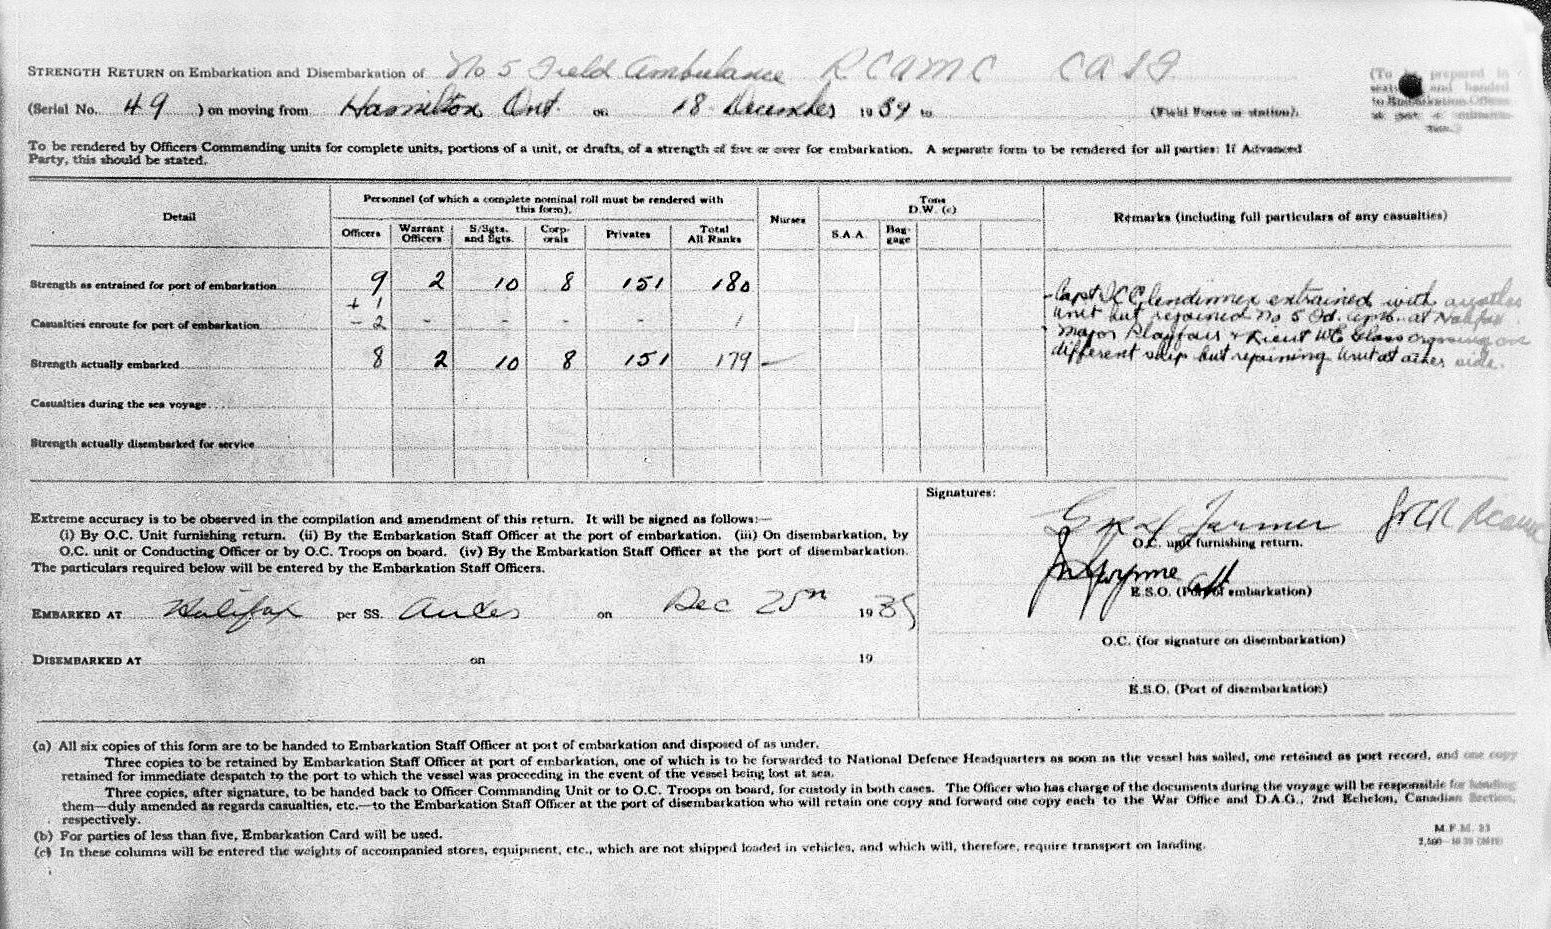 STRENGTH RETURN on Embarkation and Disembarkation of No 5 Field Ambulance RCAMC CASF
(To be prepared in
and handed
to Embarkation Officer
at port of embarkation.)
(Serial No. 49 ) on moving from Hamilton Ont. on 18 December 1939 to (Field Force or station).
To be rendered by Officers Commanding units for complete units, portions of a unit, or drafts, of a strength of five or over for embarkation. A separate form to be rendered for all parties: If Advanced
Party, this should be stated.
Detail
Personnel (of which a complete nominal roll must be rendered with
this form).
Nurses
Tons
D.W. (c)
Remarks (including full particulars of any casualties)
Officers Warrant Officers S/Sgts. and Sgts. Corporals Privates Total All Ranks S.A.A. Baggage
Strength as entrained for port of embarkation 9 2 10 8 151 180
+ 1
Casualties enroute for port of embarkation - 2 - - - - 1
Strength actually embarked 8 2 10 8 151 179 -
Casualties during the sea voyage
Strength actually disembarked for service
- Capt J C Clendinnen entrained with another
unit but rejoined No 5 Fd. Amb. at Halifax
Major Playfair & Lieut W E Glass crossing on
different ship but rejoining unit at other side.
Extreme accuracy is to be observed in the compilation and amendment of this return. It will be signed as follows:—
(i) By O.C. Unit furnishing return. (ii) By the Embarkation Staff Officer at the port of embarkation. (iii) On disembarkation, by
O.C. unit or Conducting Officer or by O.C. Troops on board. (iv) By the Embarkation Staff Officer at the port of disembarkation.
The particulars required below will be entered by the Embarkation Staff Officers.
EMBARKED AT Halifax per SS. Andes on Dec 25th 1939
DISEMBARKED AT on 19
Signatures:
Farmer
O.C. unit furnishing return.
Gwynne
E.S.O. (Port of embarkation)
O.C. (for signature on disembarkation)
E.S.O. (Port of disembarkation)
(a) All six copies of this form are to be handed to Embarkation Staff Officer at port of embarkation and disposed of as under.
Three copies to be retained by Embarkation Staff Officer at port of embarkation, one of which is to be forwarded to National Defence Headquarters as soon as the vessel has sailed, one retained as port record, and one copy
retained for immediate despatch to the port to which the vessel was proceeding in the event of the vessel being lost at sea.
Three copies, after signature, to be handed back to Officer Commanding Unit or to O.C. Troops on board, for custody in both cases. The Officer who has charge of the documents during the voyage will be responsible for handing
them—duly amended as regards casualties, etc.—to the Embarkation Staff Officer at the port of disembarkation who will retain one copy and forward one copy each to the War Office and D.A.G., 2nd Echelon, Canadian Section,
respectively.
(b) For parties of less than five, Embarkation Card will be used.
(c) In these columns will be entered the weights of accompanied stores, equipment, etc., which are not shipped loaded in vehicles, and which will, therefore, require transport on landing.
M.F.M. 23